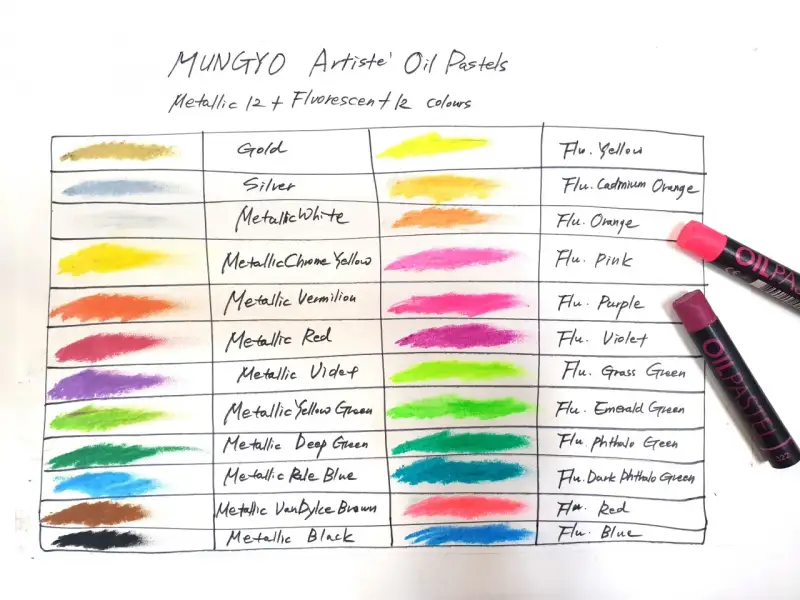 MUNGYO Artiste' Oil Pastels
Metallic 12 + Fluorescent 12 colours
Gold
Flu. Yellow
Silver
Flu. Cadmium Orange
Metallic White
Flu. Orange
Metallic Chrome Yellow
Flu. Pink
Metallic Vermilion
Flu. Purple
Metallic Red
Flu. Violet
Metallic Violet
Flu. Grass Green
Metallic Yellow Green
Flu. Emerald Green
Metallic Deep Green
Flu Phthalo Geen
Metallic Pale Blue
Flu. Dark Phthalo Green
Metallic VanDyke Brown
Flu. Red
Metallic Black
Flu. Blue
OIL PAS
OIL PASTEL